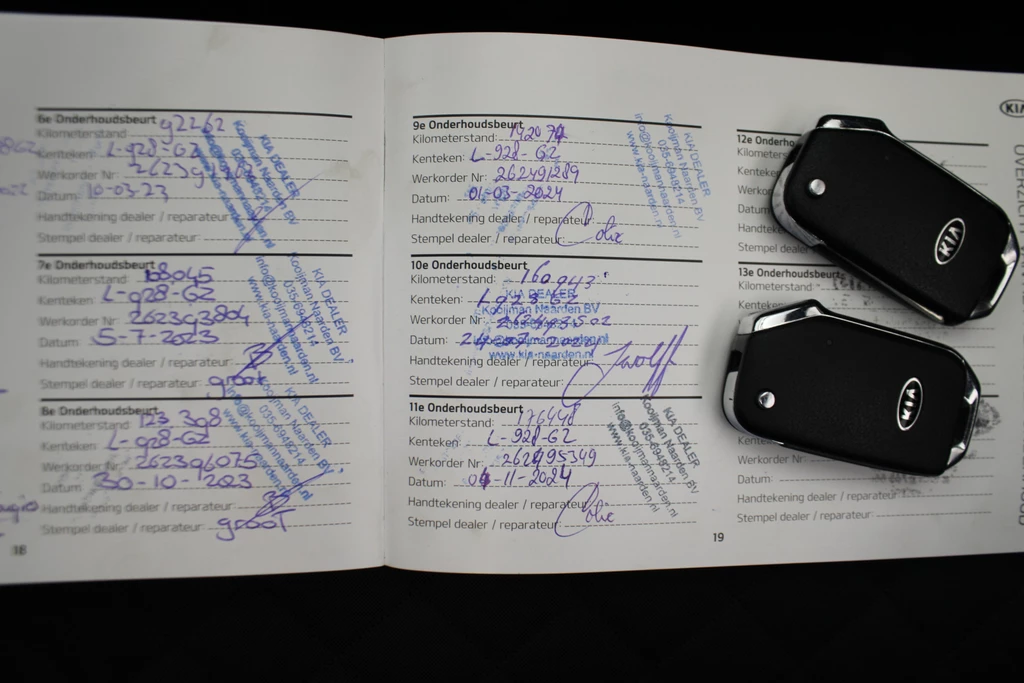 6e Onderhoudsbeurt
Kilometerstand 92262
Kenteken: L-928-GZ
Werkorder Nr:
Datum: 10-03-23
Handtekening dealer / reparateur:
Stempel dealer / reparateur:
KIA DEALER
Kooijman Naarden BV
035-6949214
info@kooijmannaarden.nl
www.kia-naarden.nl
7e Onderhoudsbeurt
Kilometerstand 108045
Kenteken: L-928-GZ
Werkorder Nr: 262393804
Datum: 5-7-2023
Handtekening dealer / reparateur:
Stempel dealer / reparateur: groot
KIA DEALER
Kooijman Naarden BV
035-6949214
info@kooijmannaarden.nl
www.kia-naarden.nl
8e Onderhoudsbeurt
Kilometerstand: 123.398
Kenteken: L-928-GZ
Werkorder Nr: 262396075
Datum: 30-10-2023
Handtekening dealer / reparateur:
Stempel dealer / reparateur: groot
KIA DEALER
Kooijman Naarden BV
035-6949214
info@kooijmannaarden.nl
www.kia-naarden.nl
18
9e Onderhoudsbeurt
Kilometerstand: 142074
Kenteken: L-928-GZ
Werkorder Nr: 262491289
Datum: 01-03-2024
Handtekening dealer / reparateur:
Stempel dealer / reparateur:
KIA DEALER
Kooijman Naarden BV
035-6949214
info@kooijmannaarden.nl
www.kia-naarden.nl
10e Onderhoudsbeurt
Kilometerstand: 160943
Kenteken: L-928-GZ
Werkorder Nr:
Datum:
Handtekening dealer / reparateur:
Stempel dealer / reparateur:
KIA DEALER
Kooijman Naarden BV
www.kia-naarden.nl
11e Onderhoudsbeurt
Kilometerstand: 176448
Kenteken: L-928-GZ
Werkorder Nr: 262495349
Datum: 04-11-2024
Handtekening dealer / reparateur:
Stempel dealer / reparateur:
KIA DEALER
Kooijman Naarden BV
035-6949214
info@kooijmannaarden.nl
www.kia-naarden.nl
19
12e Onderho
Kilometers
Kenteke
Werkor
Datum
Handte
Stempel deale
13e Onderhoudsbeurt
Kilometerstand
Kenteken
Kenteken:
Werkorder Nr:
Datum:
Handtekening dealer / reparateur:
Stempel dealer / reparateur:
KIA
KIA
KIA